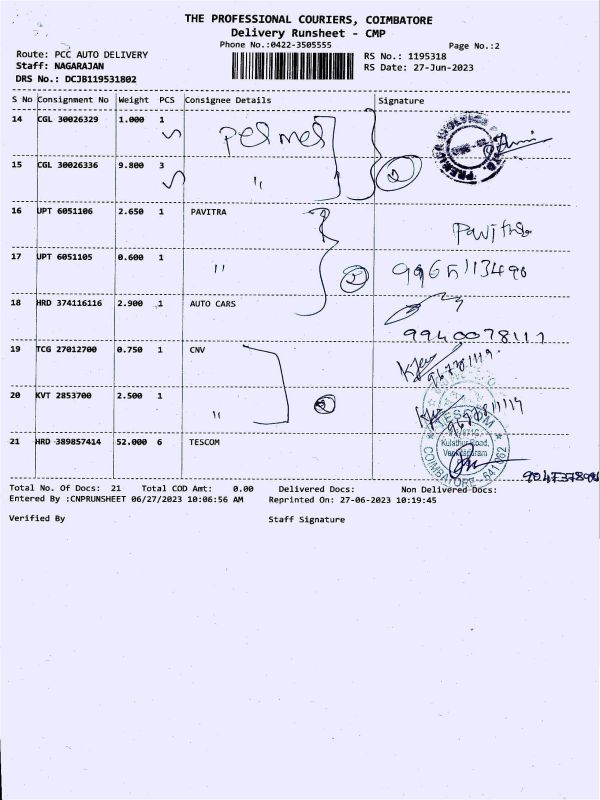 THE PROFESSIONAL COURIERS, COIMBATORE
Delivery Runsheet - CMP
Phone No.:0422-3505555
Page No.:2
Route: PCC AUTO DELIVERY
Staff: NAGARAJAN
DRS No.: DCJB119531802
RS No.: 1195318
RS Date: 27-Jun-2023
S No Consignment No Weight PCS Consignee Details Signature
14 CGL 30026329 1.000 1
15 CGL 30026336 9.800 3 "
16 UPT 6051106 2.650 1 PAVITRA Pavithra
17 UPT 6051105 0.600 1 " 2
18 HRD 374116116 2.900 1 AUTO CARS 9940078111
19 TCG 27012700 0.750 1 CNV
20 KVT 2853700 2.500 1 "
21 HRD 389857414 52.000 6 TESCOM
TESCOM
Kulathur Road,
Venkitapuram
COIMBATORE - 641062
Total No. Of Docs: 21 Total COD Amt: 0.00 Delivered Docs: Non Delivered Docs:
Entered By :CNPRUNSHEET 06/27/2023 10:06:56 AM Reprinted On: 27-06-2023 10:19:45
Verified By Staff Signature